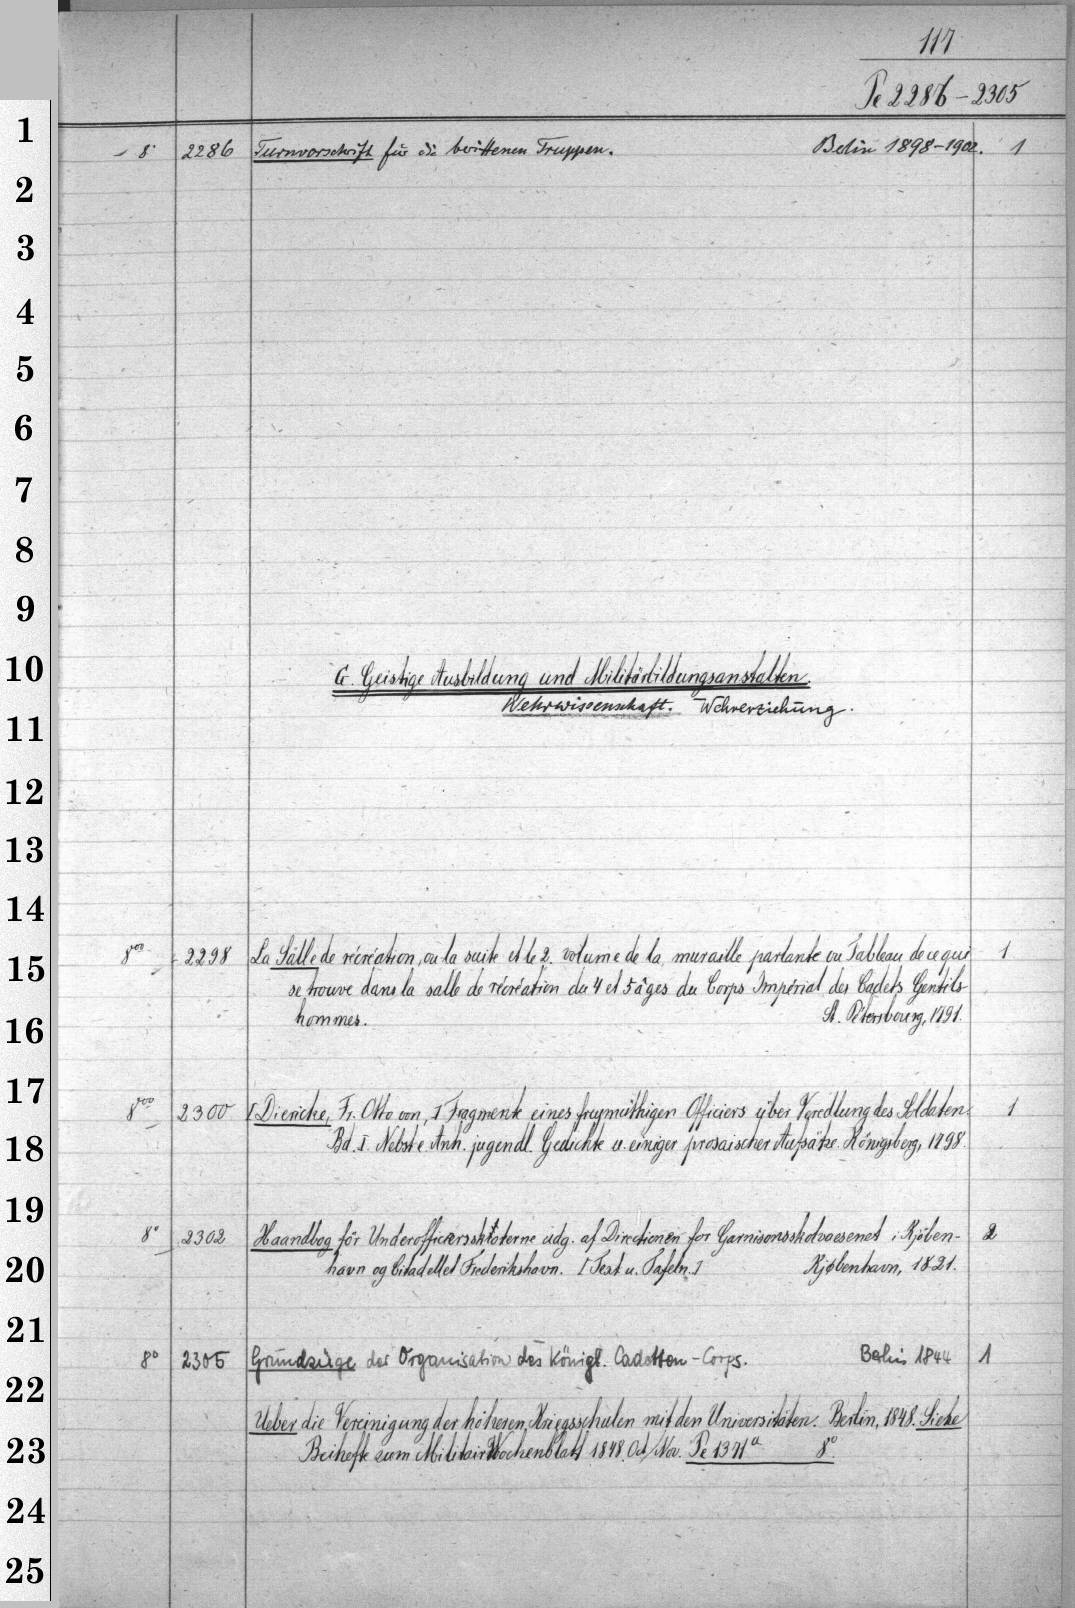 117
Pe 2286-2305
8° 2286 Turnvorschrift für die berittenen Truppen. Berlin 1898-1902. 1
G Geistige Ausbildung und Militärbildungsanstalten.
Wehrwissenschaft. Wehrerziehung.
8vo 2298 La Salle de récréation, ou la suite et le 2. volume de la muraille parlante ou Tableau de ce qui 1
se trouve dans la salle de récréation du 4 et 5 âges du Corps Impérial des Cadets Gentils-
hommes. St. Pétersbourg, 1791.
8vo 2300 [Diericke, Fr. Otto von,] Fragmente eines freymüthigen Officiers über Veredlung des Soldaten. 1
Bd. I. Nebst e. Anh. jugendl. Gedichte u. einiger prosaischer Aufsätze. Königsberg, 1798.
8° 2302 Haandbog för Underofficersskolerne udg. af Directionen for Garnisonsskolvaesenet i Kjöben- 2
havn og Citadellet Frederikshavn. [Text u. Tafeln.] Kjøbenhavn, 1821.
8° 2305 Grundzüge der Organisation des Königl. Cadetten-Corps. Berlin 1844 1
Ueber die Vereinigung der höheren Kriegsschulen mit den Universitäten. Berlin, 1848. Siehe
Beihefte zum Militair Wochenblatt 1848. Oct/Nov. Pe 1371a 8°
1
2
3
4
5
6
7
8
9
10
11
12
13
14
15
16
17
18
19
20
21
22
23
24
25